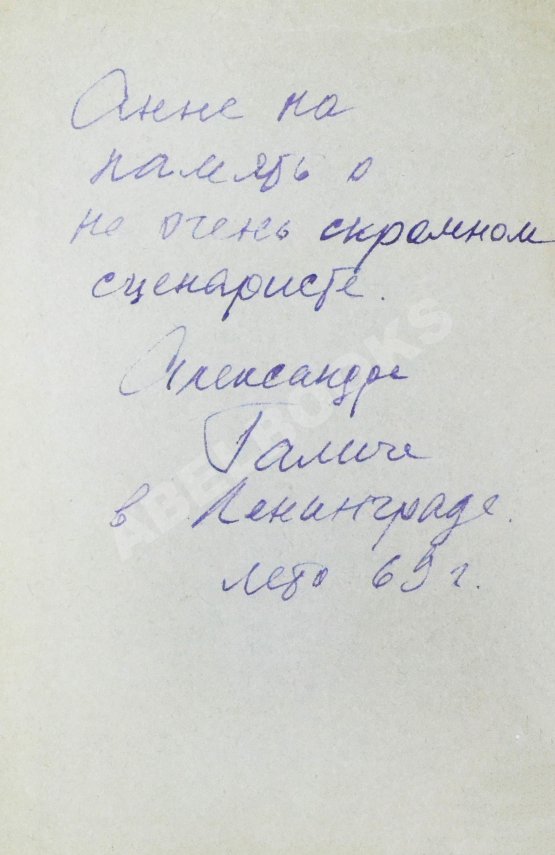 Анне на
память о
не очень скромном
сценаристе.
Александре
Галиче
в Ленинграде.
лето 69 г.
ABELBOOKS